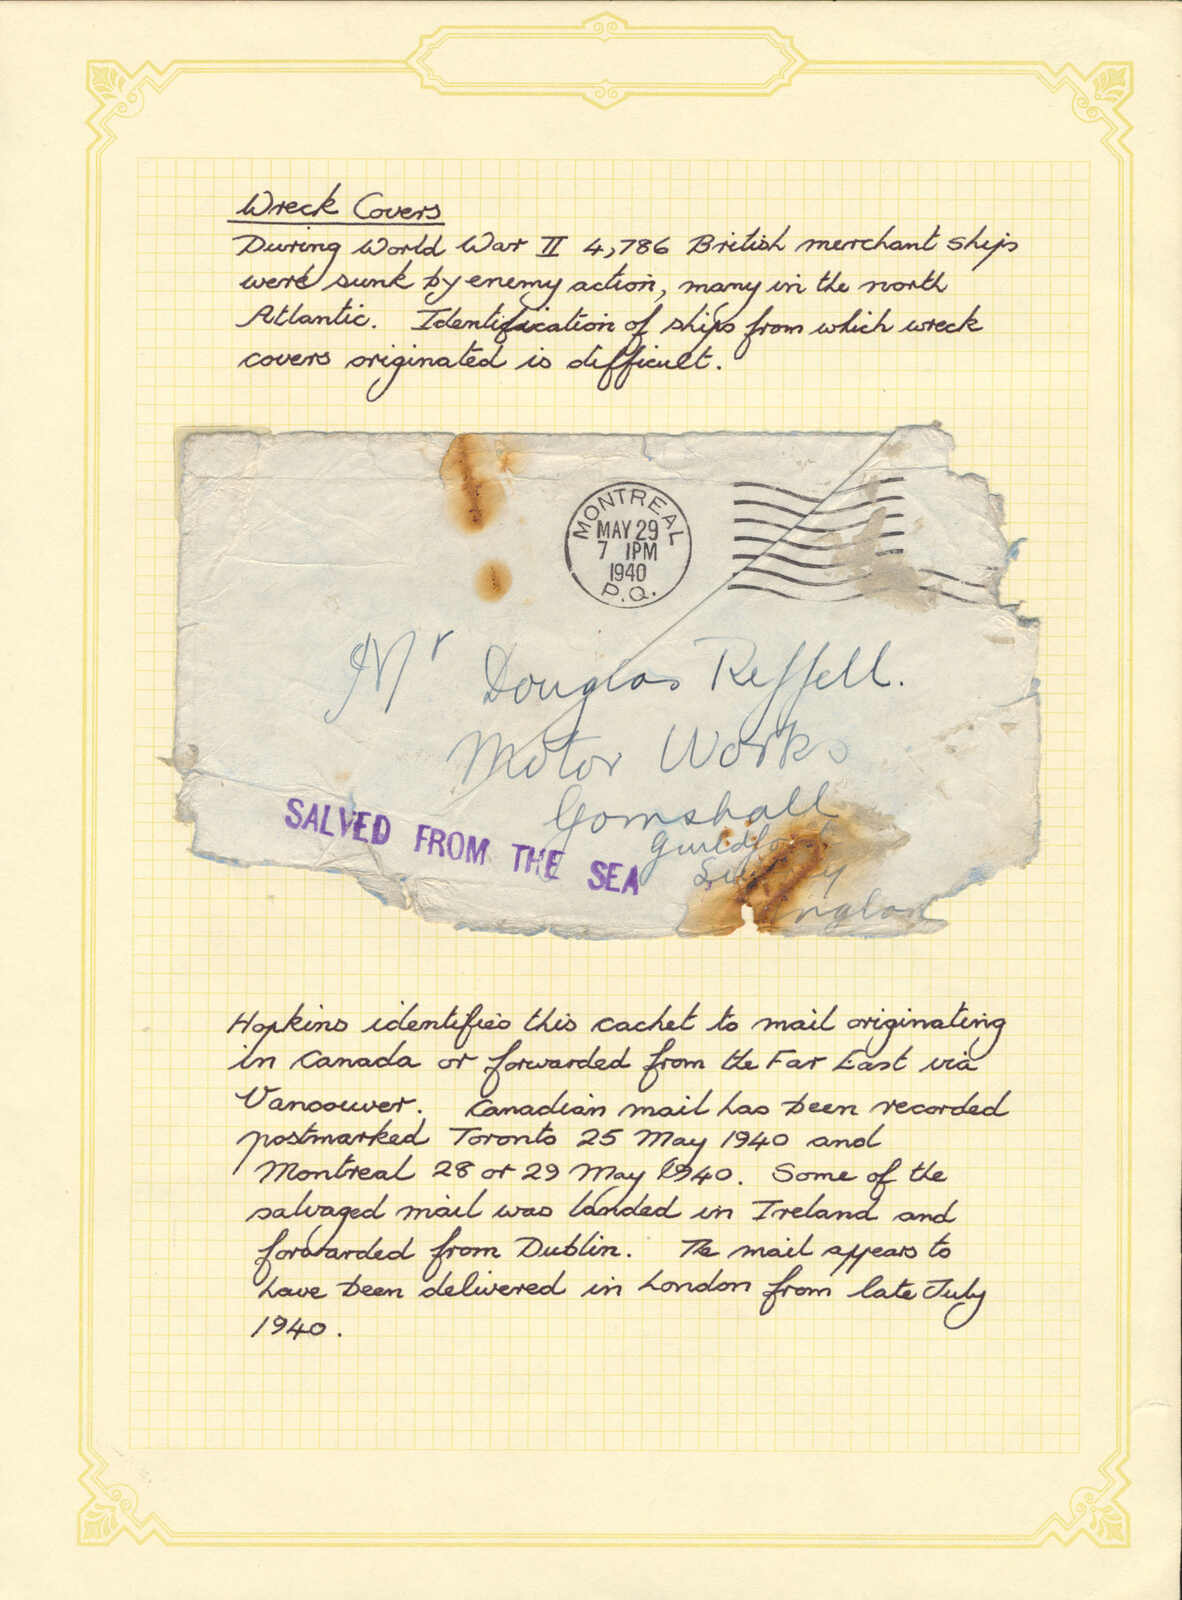 Wreck Covers
During World War II 4,786 British merchant ships
were sunk by enemy action, many in the north
Atlantic. Identification of ships from which wreck
covers originated is difficult.
MONTREAL
MAY 29
7 1PM
1940
P.Q.
Mr Douglas Reffell.
Motor Works
Gomshall
Guildford
Surrey
England
SALVED FROM THE SEA
Hopkins identifies this cachet to mail originating
in Canada or forwarded from the Far East via
Vancouver. Canadian mail has been recorded
postmarked Toronto 25 May 1940 and
Montreal 28 or 29 May 1940. Some of the
salvaged mail was landed in Ireland and
forwarded from Dublin. The mail appears to
have been delivered in London from late July
1940.